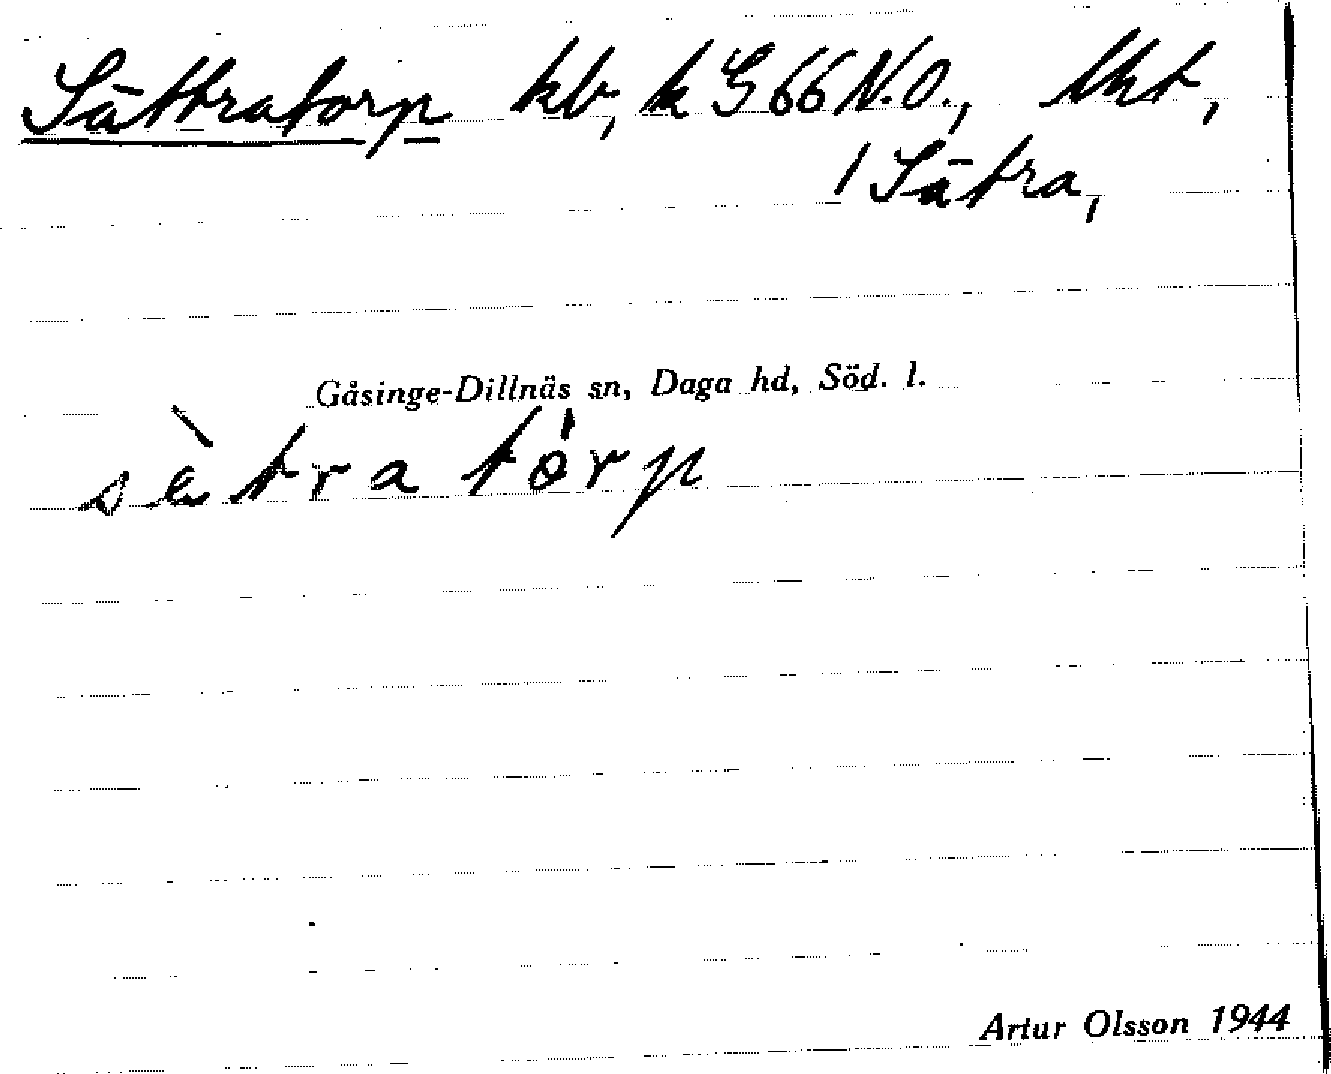 Sättratorp kb, k G 66 N.O.,
1 Sätra,
Gåsinge-Dillnäs sn, Daga hd, Söd. l.
sètratórp
Artur Olsson 1944